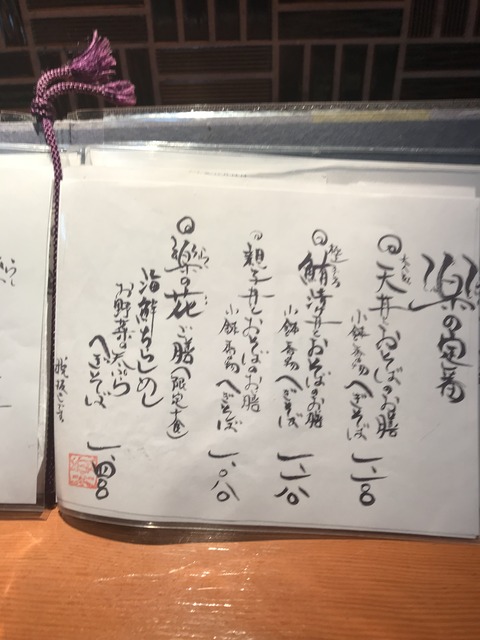 楽の定番
天丼とおそばのお膳
小鉢 香物 へぎそば 一、一〇〇
鮪漬丼とおそばのお膳
小鉢 香物 へぎそば 一、一八〇
親子丼とおそばのお膳
小鉢 香物 へぎそば 一、〇八〇
楽の花 ご膳(限定十食)
海鮮ちらしめし
お野菜の天ぷら
へぎそば 一、四八〇